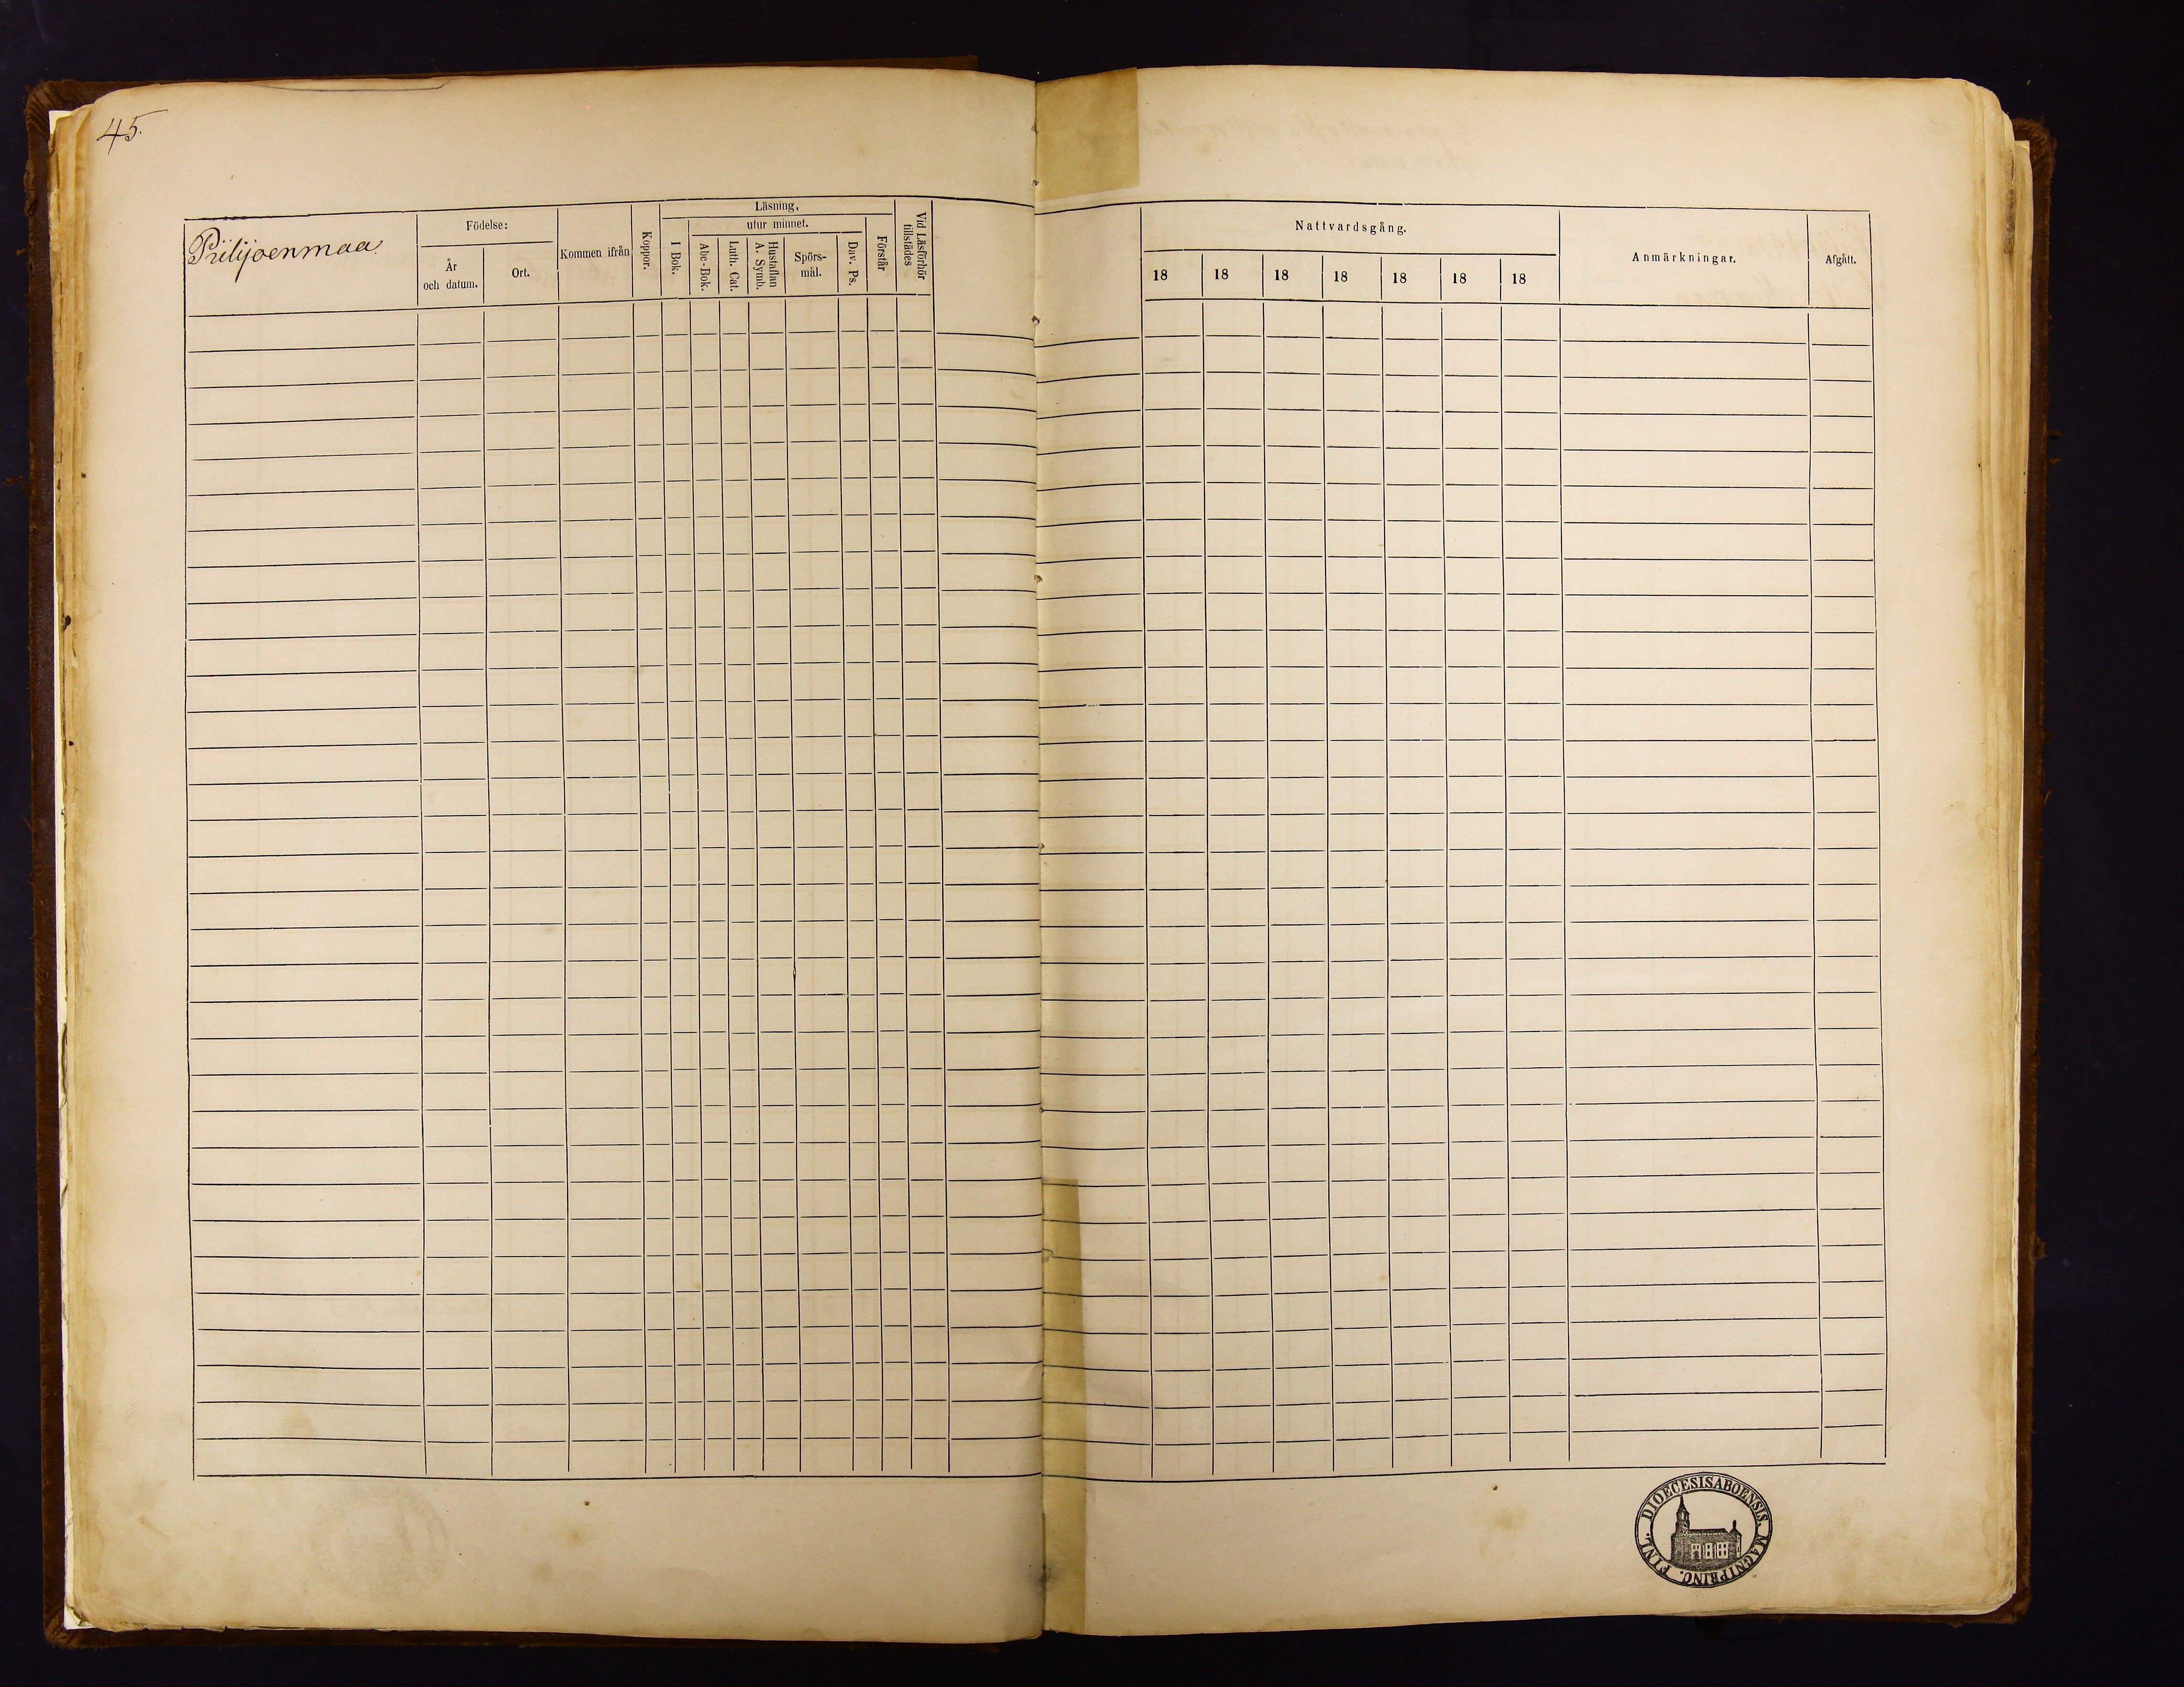 45.
Piilijoenmaa
Födelse:
År
och datum.
Ort.
Kommen ifrån
Koppor.
Läsning,
I Bok.
utur minnet.
Abc-Bok.
Luth. Cat.
Hustaflan
A. Symb.
Spörs-
mål.
Dav. Ps.
Förstår
Vid Läsförhör
tillstädes
Nattvardsgång.
18 18 18 18 18 18 18
Anmärkningar.
Afgått.
DIOECESISABOENSIS. MAGNIPRINC. FINL.